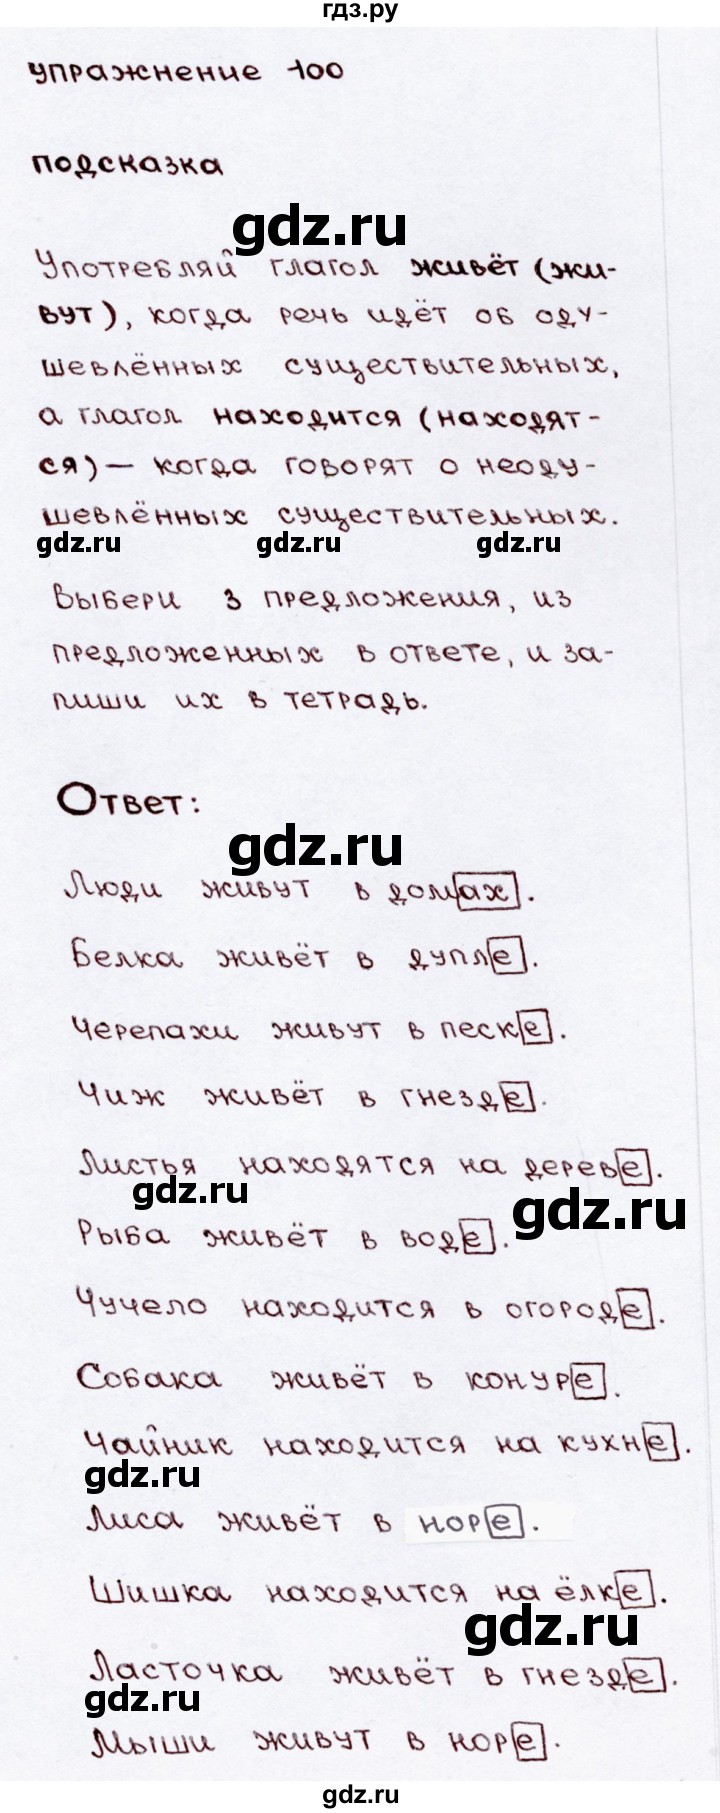 гдз.ру
упражнение 100
подсказка
gdz.ru
Употребляй глагол живёт (жи-
вут), когда речь идёт об оду-
шевлённых существительных,
а глагол находится (находят-
ся) — когда говорят о неоду-
шевлённых существительных.
gdz.ru gdz.ru gdz.ru
Выбери 3 предложения, из
предложенных в ответе, и за-
пиши их в тетрадь.
Ответ:
gdz.ru
Люди живут в домах.
Белка живёт в дупле.
Черепахи живут в песке.
Чиж живёт в гнезде.
Листья находятся на дереве.
gdz.ru gdz.ru
Рыба живёт в воде.
Чучело находится в огороде.
Собака живёт в конуре.
Чайник находится на кухне.
gdz.ru
Лиса живёт в норе.
Шишка находится на ёлке.
gdz.ru
Ласточка живёт в гнезде.
gdz.ru
Мыши живут в норе.
gdz.ru